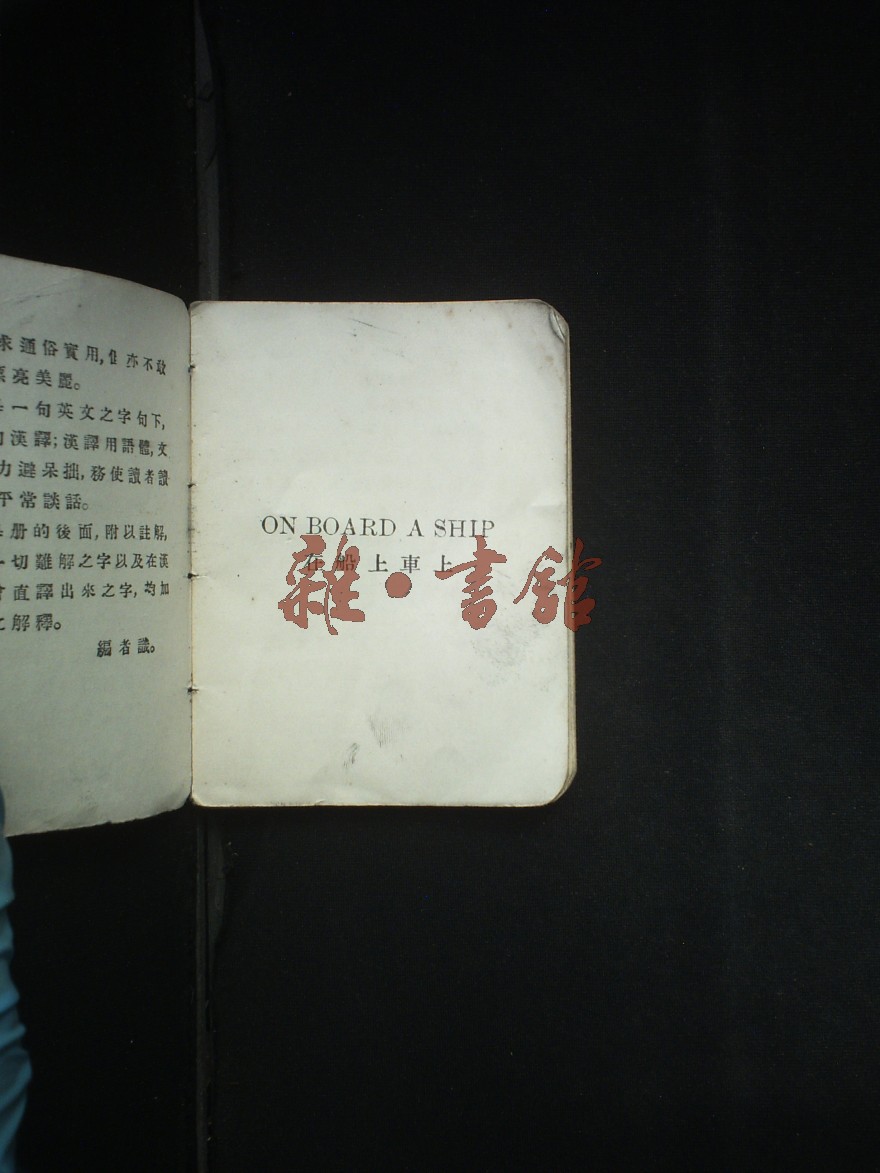 求通俗實用,但亦不敢
亮美麗。
一句英文之字句下,
漢譯;漢譯用語體,文
力避呆拙,務使讀者讀
平常談話。
册的後面,附以註解,
一切難解之字以及在漢
直譯出來之字,均加
之解釋。
編者識。
ON BOARD A SHIP
在船上車上
雜·書館